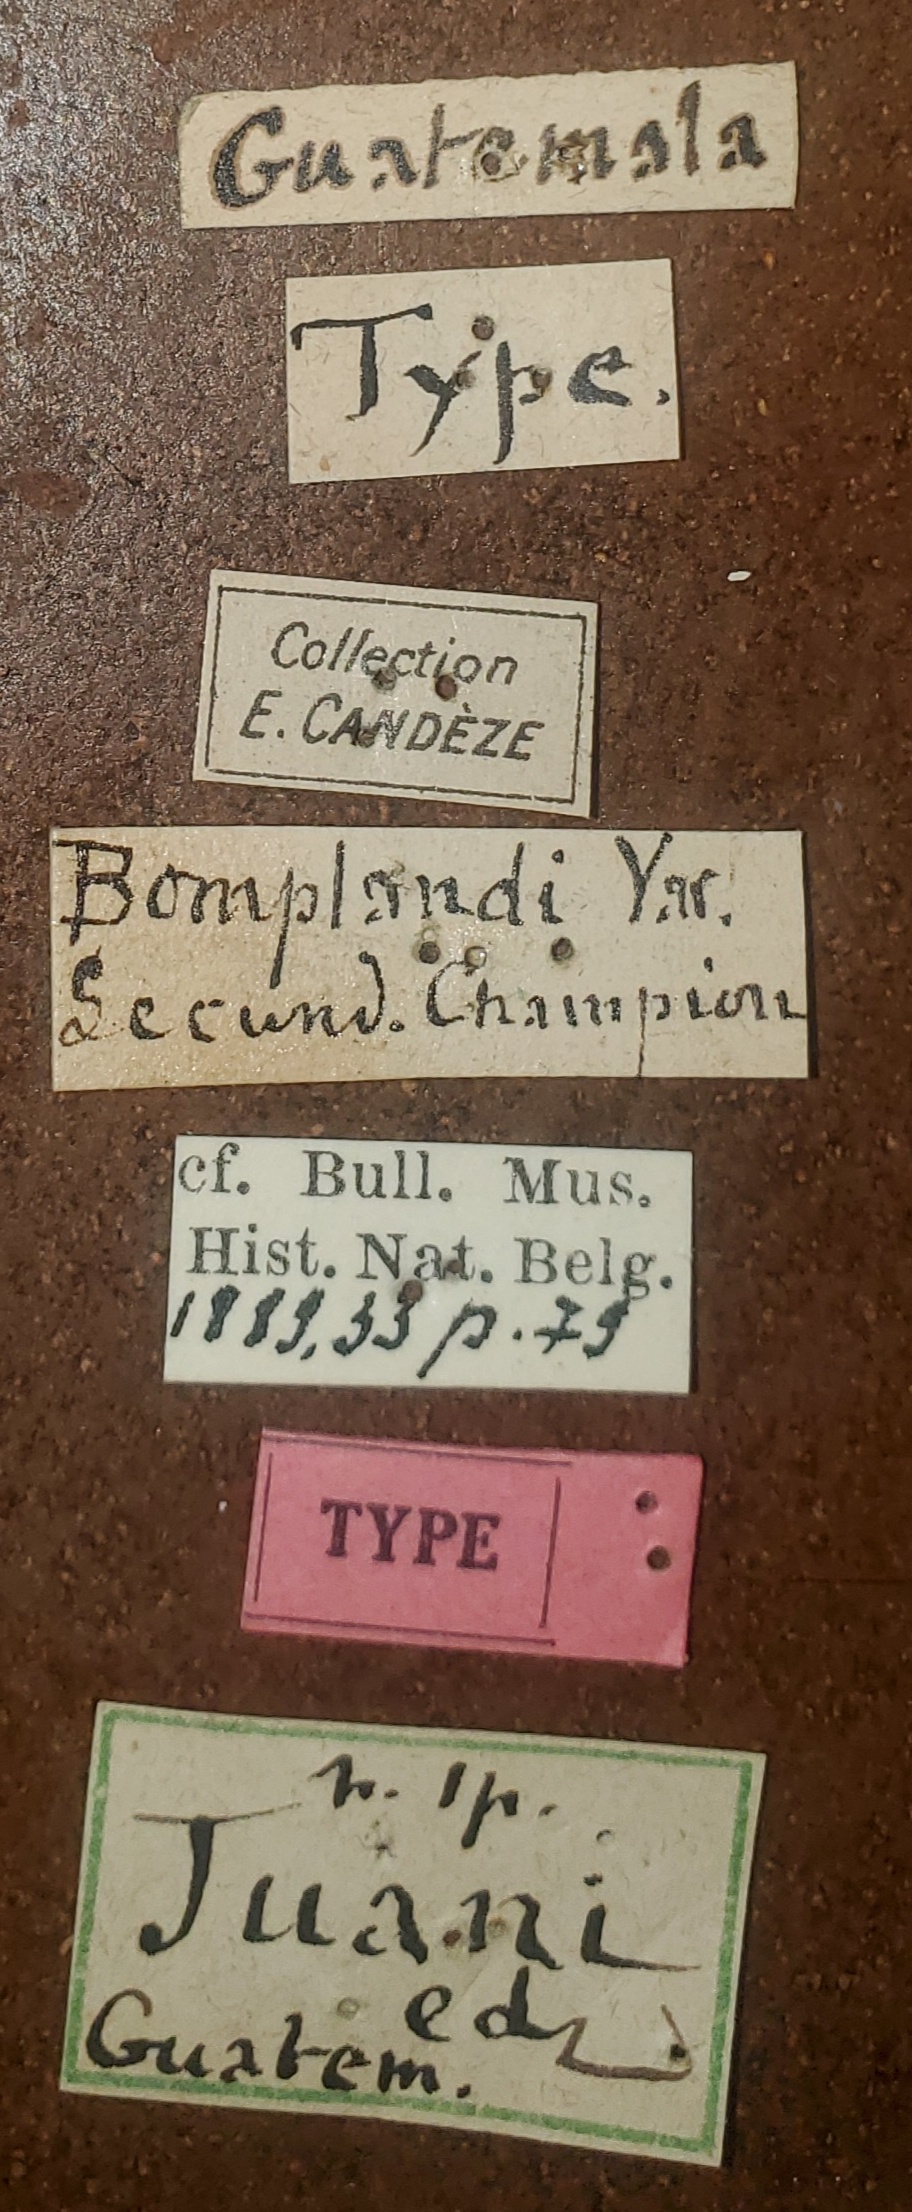 Guatemala
Type.
Collection
E. CANDÈZE
Bomplandi Var.
Secund. Champion
cf. Bull. Mus.
Hist. Nat. Belg.
1889, 33 p. 79
TYPE
n. sp.
Juani
ed
Guatem.